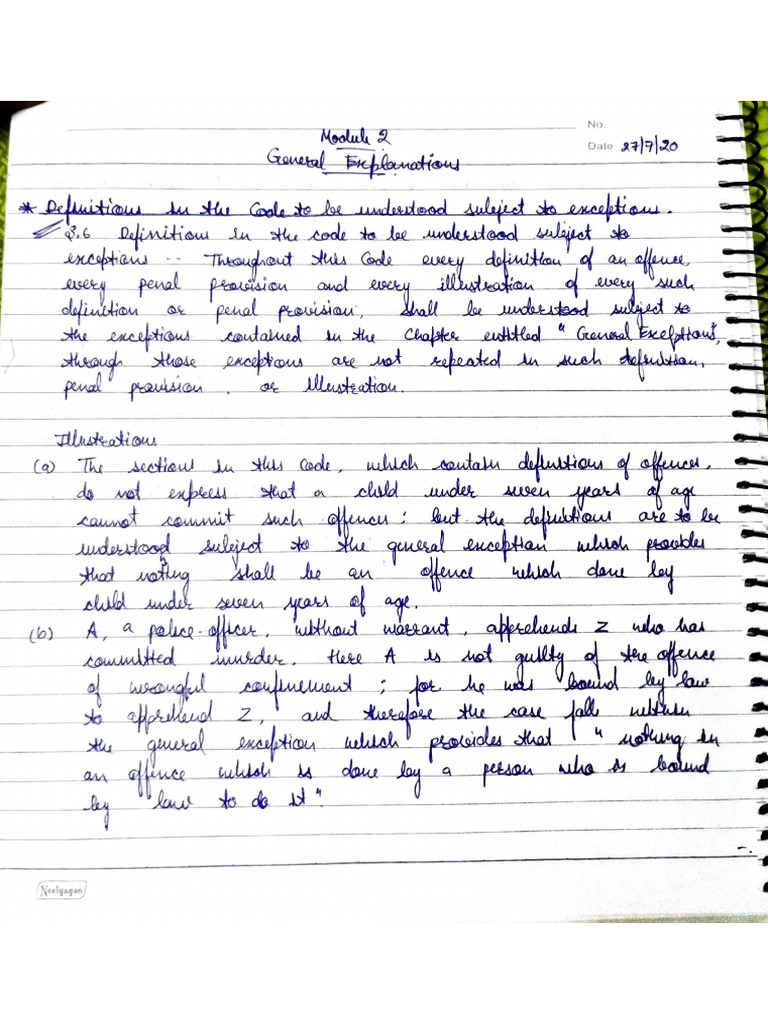 No.
Module 2
Date 27/7/20
General Explanations
* Definitions in the Code to be understood subject to exceptions.
S.6 Definitions in the code to be understood subject to
exceptions -- Throughout this Code every definition of an offence,
every penal provision and every illustration of every such
definition or penal provision, shall be understood subject to
the exceptions contained in the Chapter entitled "General Exceptions",
through those exceptions are not repeated in such definition,
penal provision, or illustration.
Illustrations
(a) The sections in this Code, which contain definitions of offences,
do not express that a child under seven years of age
cannot commit such offences; but the definitions are to be
understood subject to the general exception which provides
that noting shall be an offence which done by
child under seven years of age.
(b) A, a police-officer, without warrant, apprehends Z who has
committed murder. Here A is not guilty of the offence
of wrongful confinement; for he was bound by law
to apprehend Z, and therefore the case fall within
the general exception which provides that "nothing in
an offence which is done by a person who is bound
by law to do it".
Neelgagan